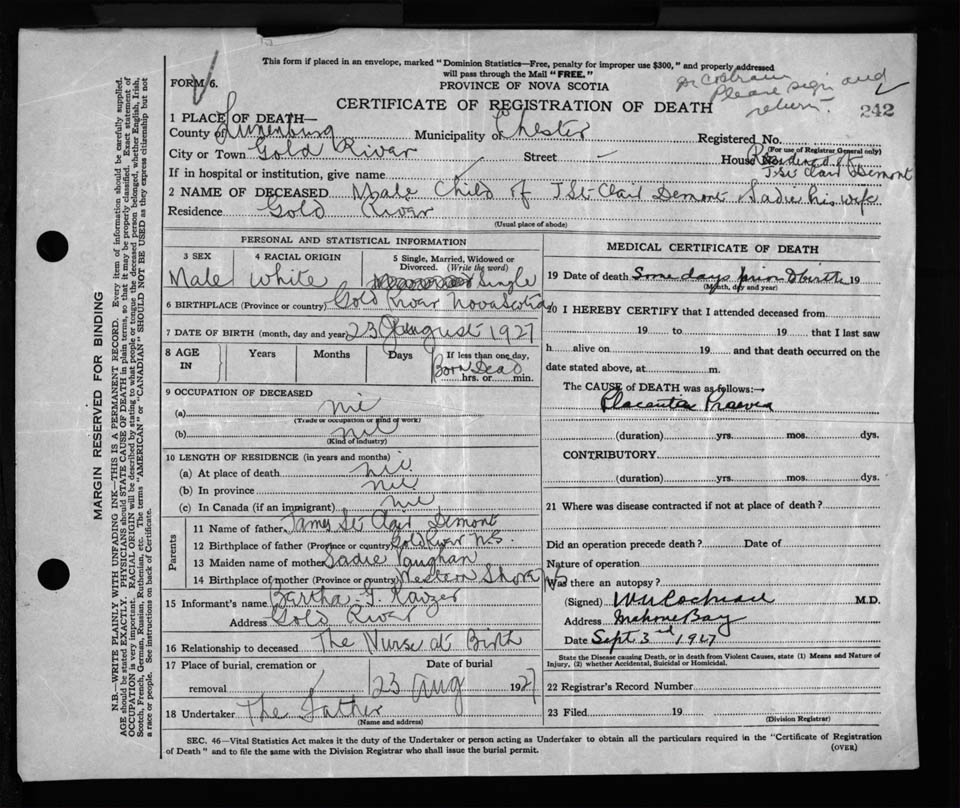 This form if placed in an envelope, marked "Dominion Statistics—Free, penalty for improper use $300," and properly addressed
will pass through the Mail "FREE."
FORM 6.
PROVINCE OF NOVA SCOTIA
Dr Cochran
Please sign and
return.
CERTIFICATE OF REGISTRATION OF DEATH
242
1 PLACE OF DEATH—
County of Lunenburg Municipality of Chester Registered No.
(For use of Registrar General only)
City or Town Gold River Street – House No. Residence of
J. St Clair Demont
If in hospital or institution, give name
2 NAME OF DECEASED Male Child of J St Clair Demont Sadie his wife
Residence Gold River
(Usual place of abode)
PERSONAL AND STATISTICAL INFORMATION
3 SEX 4 RACIAL ORIGIN 5 Single, Married, Widowed or Divorced. (Write the word)
Male White Single
6 BIRTHPLACE (Province or country) Gold River Nova Scotia
7 DATE OF BIRTH (month, day and year) 23 August 1927
8 AGE IN Years Months Days If less than one day, hrs. or min.
Born Dead
9 OCCUPATION OF DECEASED
(a) nil
(Trade or occupation or kind of work)
(b) nil
(Kind of industry)
10 LENGTH OF RESIDENCE (in years and months)
(a) At place of death nil
(b) In province nil
(c) In Canada (if an immigrant) nil
Parents
11 Name of father James St Clair Demont
12 Birthplace of father (Province or country) Gold River N.S.
13 Maiden name of mother Sadie Vaughan
14 Birthplace of mother (Province or country) Western Shore NS
15 Informant's name Bertha
Address Gold River
16 Relationship to deceased The Nurse at Birth
17 Place of burial, cremation or removal Date of burial
23 Aug 1927
18 Undertaker The Father
(Name and address)
MEDICAL CERTIFICATE OF DEATH
19 Date of death Some days prior to birth 19
(Month, day and year)
20 I HEREBY CERTIFY that I attended deceased from
19 to 19 that I last saw
h alive on 19 and that death occurred on the
date stated above, at m.
The CAUSE of DEATH was as follows:—
Placenta Praevia
(duration) yrs. mos. dys.
CONTRIBUTORY
(duration) yrs. mos. dys.
21 Where was disease contracted if not at place of death?
Did an operation precede death? Date of
Nature of operation
Was there an autopsy?
(Signed) W Cochran M.D.
Address Mahone Bay
Date Sept 3rd 1927
State the Disease causing Death, or in death from Violent Causes, state (1) Means and Nature of Injury, (2) whether Accidental, Suicidal or Homicidal.
22 Registrar's Record Number
23 Filed 19
(Division Registrar)
SEC. 46—Vital Statistics Act makes it the duty of the Undertaker or person acting as Undertaker to obtain all the particulars required in the "Certificate of Registration
of Death" and to file the same with the Division Registrar who shall issue the burial permit. (OVER)
MARGIN RESERVED FOR BINDING
N.B.—WRITE PLAINLY WITH UNFADING INK—THIS IS A PERMANENT RECORD. Every item of information should be carefully supplied.
AGE should be stated EXACTLY. PHYSICIANS should STATE CAUSE OF DEATH in plain terms, so that it may be properly classified. Exact statement of
OCCUPATION is very important. RACIAL ORIGIN will be described by stating to what people or tongue the deceased person belonged, whether English, Irish,
Scotch, French, German, Russian, Ruthenian, etc. The terms "AMERICAN" or "CANADIAN" SHOULD NOT BE USED as they express citizenship but not
a race or people. See instructions on back of Certificate.